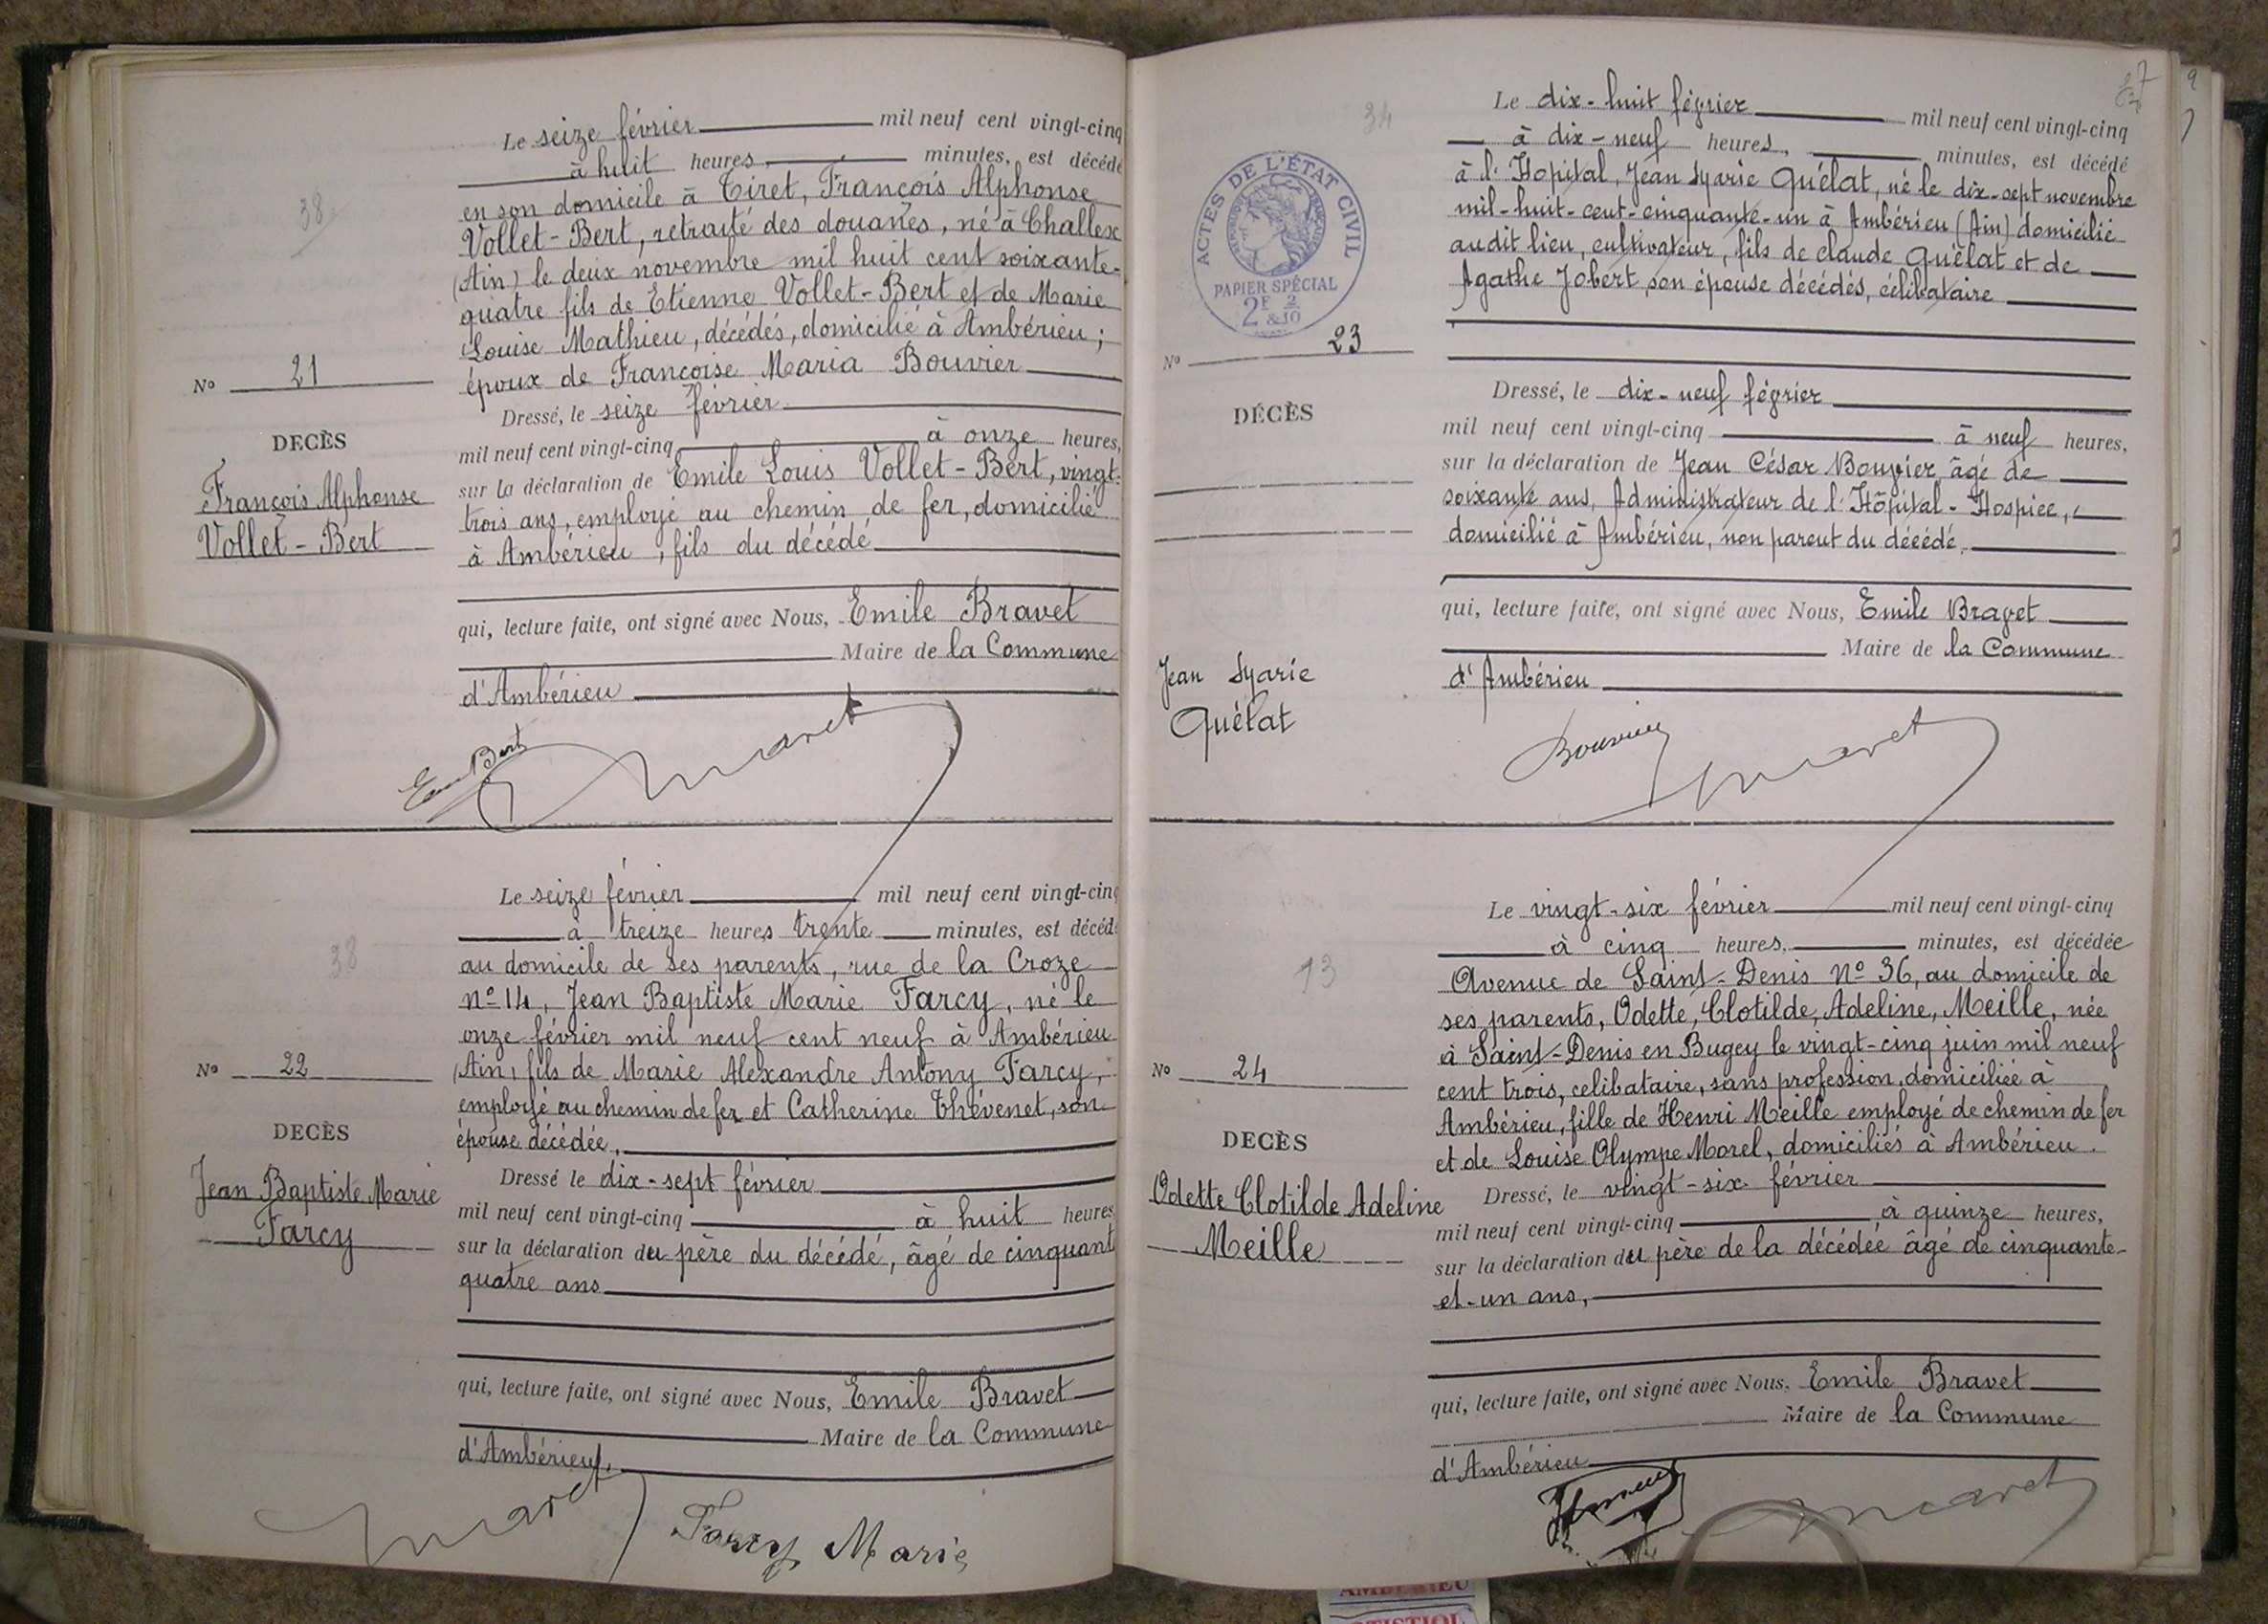 Le seize février mil neuf cent vingt-cinq
à huit heures, minutes, est décédé
en son domicile à Tiret, François Alphonse
Vollet-Bert, retraité des douanes, né à Challex
(Ain) le deux novembre mil huit cent soixante-
quatre fils de Etienne Vollet-Bert et de Marie
Louise Mathieu, décédés, domicilié à Ambérieu;
époux de Françoise Maria Bouvier
Dressé, le seize février
mil neuf cent vingt-cinq à onze heures,
sur la déclaration de Emile Louis Vollet-Bert, vingt-
trois ans, employé au chemin de fer, domicilié
à Ambérieu, fils du décédé
qui, lecture faite, ont signé avec Nous, Emile Bravet
Maire de la Commune
d'Ambérieu
38
No 21
DECÈS
François Alphonse
Vollet-Bert
Bert
Le seize février mil neuf cent vingt-cinq
à treize heures trente minutes, est décédé
au domicile de ses parents, rue de la Croze
no 14, Jean Baptiste Marie Farcy, né le
onze février mil neuf cent neuf à Ambérieu
(Ain) fils de Marie Alexandre Antony Farcy,
employé au chemin de fer et Catherine Thévenet, son
épouse décédée,
Dressé le dix-sept février
mil neuf cent vingt-cinq à huit heures
sur la déclaration du père du décédé, âgé de cinquant
quatre ans
qui, lecture faite, ont signé avec Nous, Emile Bravet
Maire de la Commune
d'Ambérieu,
38
No 22
DECÈS
Jean Baptiste Marie
Farcy
Farcy Marie
34
ACTES DE L'ÉTAT CIVIL
PAPIER SPÉCIAL
2F & 2/10
Le dix-huit février mil neuf cent vingt-cinq
à dix-neuf heures, minutes, est décédé
à l'Hopital, Jean Syarie Quélat, né le dix-sept novembre
mil-huit-cent-cinquante-un à Ambérieu (Ain) domicilié
audit lieu, cultivateur, fils de claude Quélat et de
Agathe Jobert son épouse décédés, célibataire
Dressé, le dix-neuf février
mil neuf cent vingt-cinq à neuf heures,
sur la déclaration de Jean César Bouvier âgé de
soixante ans, Administrateur de l'Hôpital-Hospice,
domicilié à Ambérieu, non parent du décédé,
qui, lecture faite, ont signé avec Nous, Emile Bravet
Maire de la Commune
d'Ambérieu
No 23
DÉCÈS
Jean Syarie
Quélat
Bouvier
Le vingt-six février mil neuf cent vingt-cinq
à cinq heures, minutes, est décédée
Avenue de Saint-Denis No 36, au domicile de
ses parents, Odette, Clotilde, Adeline, Meille, née
à Saint-Denis en Bugey le vingt-cinq juin mil neuf
cent trois, celibataire, sans profession, domiciliée à
Ambérieu, fille de Henri Meille employé de chemin de fer
et de Louise Olympe Morel, domiciliés à Ambérieu.
Dressé, le vingt-six février
mil neuf cent vingt-cinq à quinze heures,
sur la déclaration du père de la décédée âgé de cinquante-
et-un ans,
qui, lecture faite, ont signé avec Nous, Emile Bravet
Maire de la Commune
d'Ambérieu
13
No 24
DECÈS
Odette Clotilde Adeline
Meille